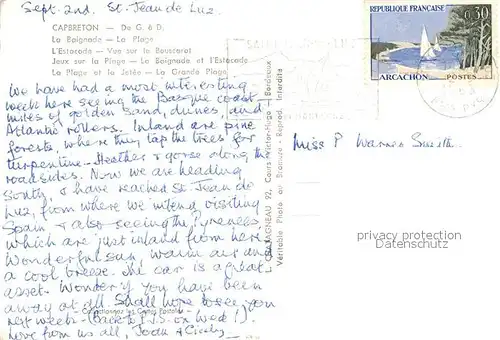 Sept. 2nd. St. Jean de Luz.
CAPBRETON - De G. à D.
La Baignade - La Plage
L'Estacade - Vue sur le Bouscarot
Jeux sur la Plage - La Baignade et l'Estacade
La Plage et la Jetée - La Grande Plage
We have had a most interesting
week here seeing the Basque coast
miles of golden sand, dunes, and
Atlantic rollers. Inland are pine
forests, where they tap the trees for
turpentine - Heather & gorse along the
roadsides. Now we are heading
South, & have reached St Jean de
Luz, from where we intend visiting
Spain & also seeing the Pyrenees,
which are just inland from here.
Wonderful sun, warm air and
a cool breeze. The car is a great
asset. Wonder if you have been
away at all. Shall hope to see you
next week - (back to
on Wed!).
Love from us all, Joan &
Collectionnez les Cartes Postales
CHATAGNEAU 92, Cours Victor-Hugo - Bordeaux
Véritable Photo au Bromure - Reprod. Interdite
REPUBLIQUE FRANÇAISE
0,30
ARCACHON
POSTES
Miss P Warner Smith
privacy protection
Datenschutz